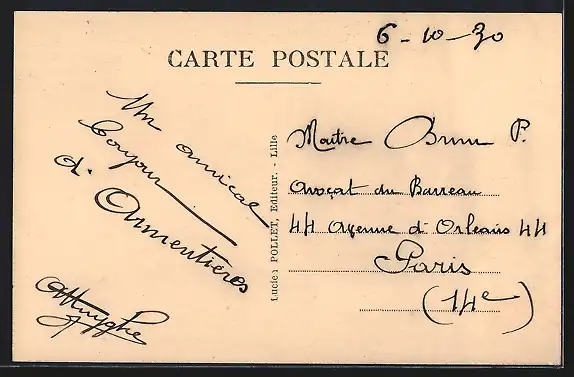 6-10-30
CARTE POSTALE
Un amical
bonjour
d'Armentières
Huyghe
Lucien POLLET, Editeur. - Lille
Maître Brun P.
Avocat du Barreau
44 Avenue d'Orleans 44
Paris
(14e)